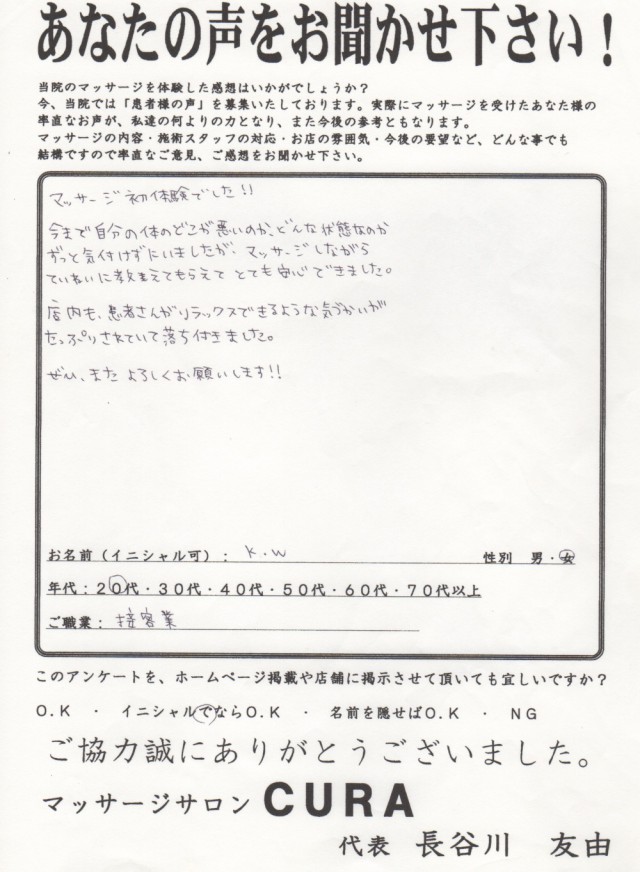 あなたの声をお聞かせ下さい！
当院のマッサージを体験した感想はいかがでしょうか？
今、当院では「患者様の声」を募集いたしております。実際にマッサージを受けたあなた様の
率直なお声が、私達の何よりの力となり、また今後の参考ともなります。
マッサージの内容・施術スタッフの対応・お店の雰囲気・今後の要望など、どんな事でも
結構ですので率直なご意見、ご感想をお聞かせ下さい。
マッサージ初体験でした!!
今まで自分の体のどこが悪いのか、どんな状態なのか
ずっと気付けずにいましたが、マッサージしながら
ていねいに教えてもらえて とても安心できました。
店内も、患者さんがリラックスできるような気づかいが
たっぷりされていて落ち付きました。
ぜひ、また よろしくお願いします!!
お名前（イニシャル可）： K.W 性別 男・女
年代：２０代・３０代・４０代・５０代・６０代・７０代以上
ご職業： 接客業
このアンケートを、ホームページ掲載や店舗に掲示させて頂いても宜しいですか？
Ｏ.Ｋ ・ イニシャルでならＯ.Ｋ ・ 名前を隠せばＯ.Ｋ ・ ＮＧ
ご協力誠にありがとうございました。
マッサージサロン CURA
代表 長谷川 友由